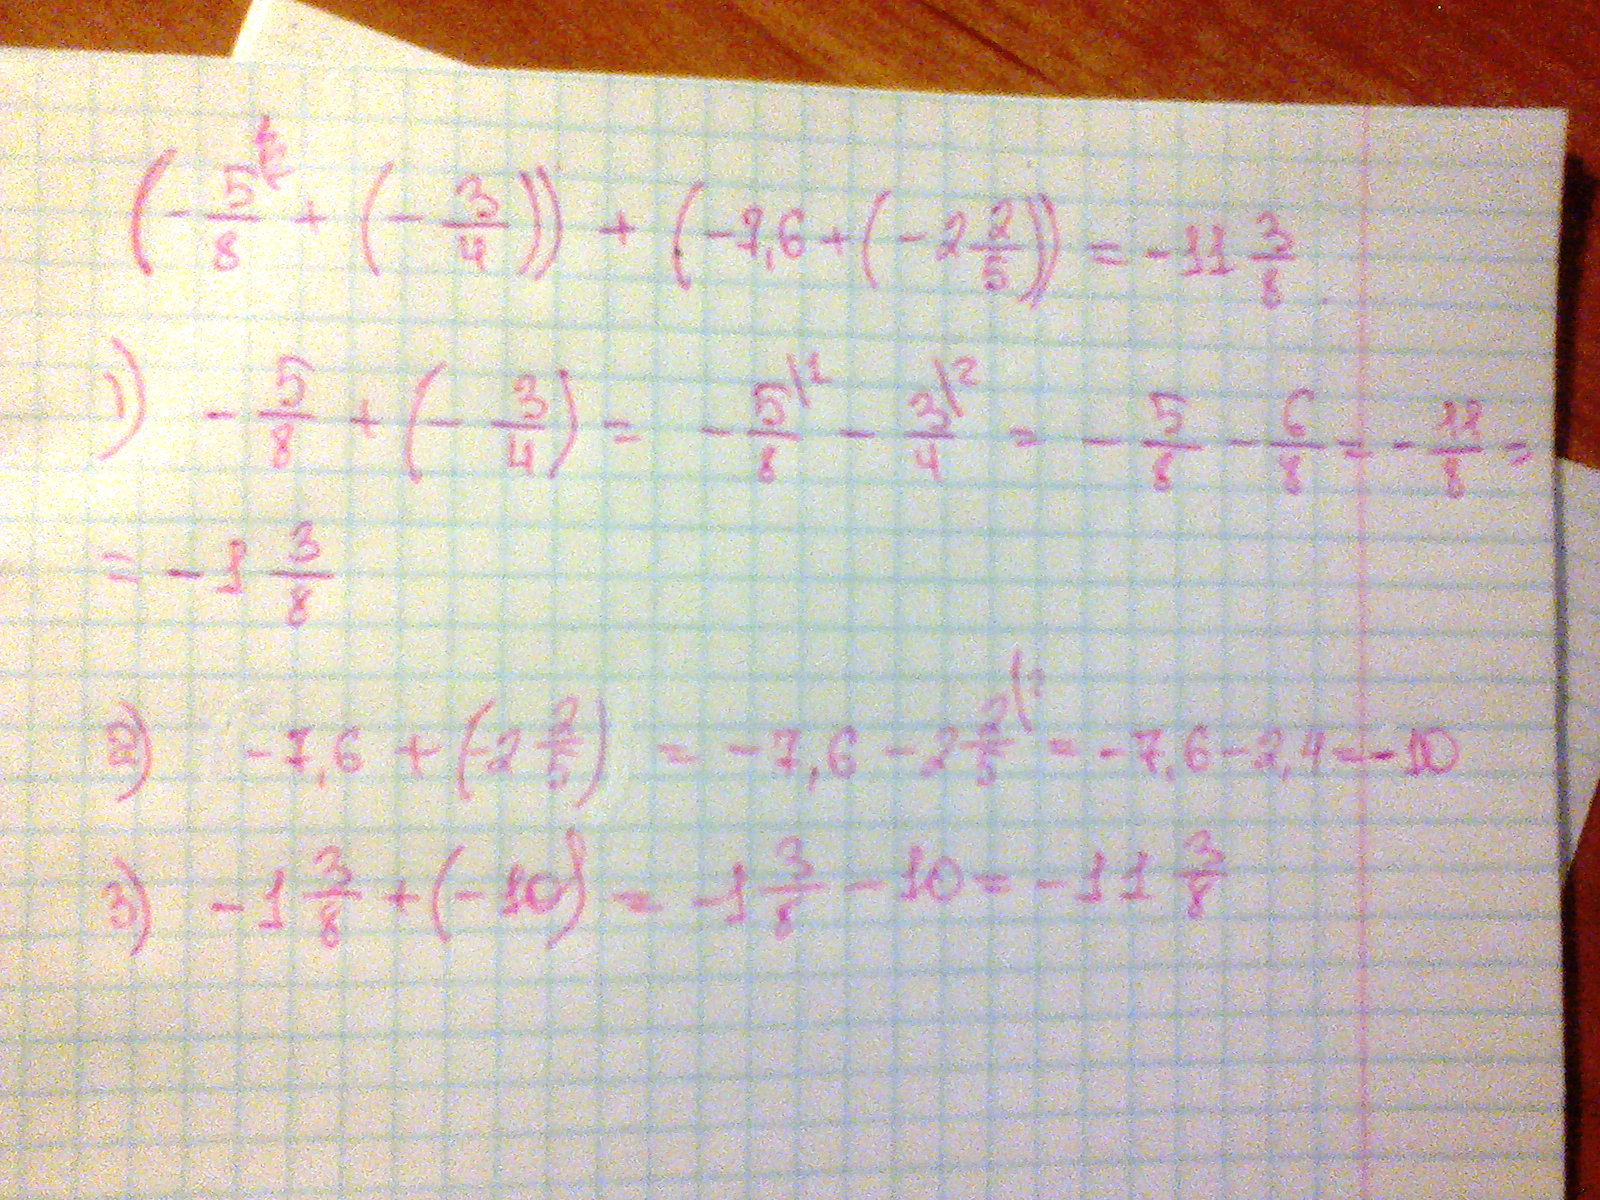 (-5/8 + (-3/4)) + (-7,6 + (-2 2/5)) = -11 3/8
1) -5/8 + (-3/4) = -5\1/8 - 3\2/4 = -5/8 - 6/8 = -11/8 =
= -1 3/8
2) -7,6 + (-2 2/5) = -7,6 - 2 2/5 = -7,6 - 2,4 = -10
3) -1 3/8 + (-10) = -1 3/8 - 10 = -11 3/8